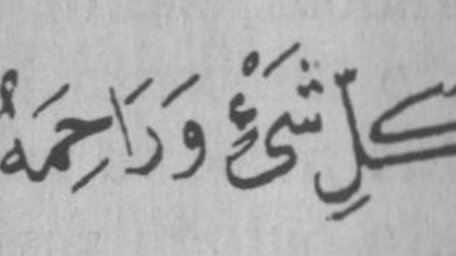 كلِّ شَىْءٍ وَرَاحِمَهُ